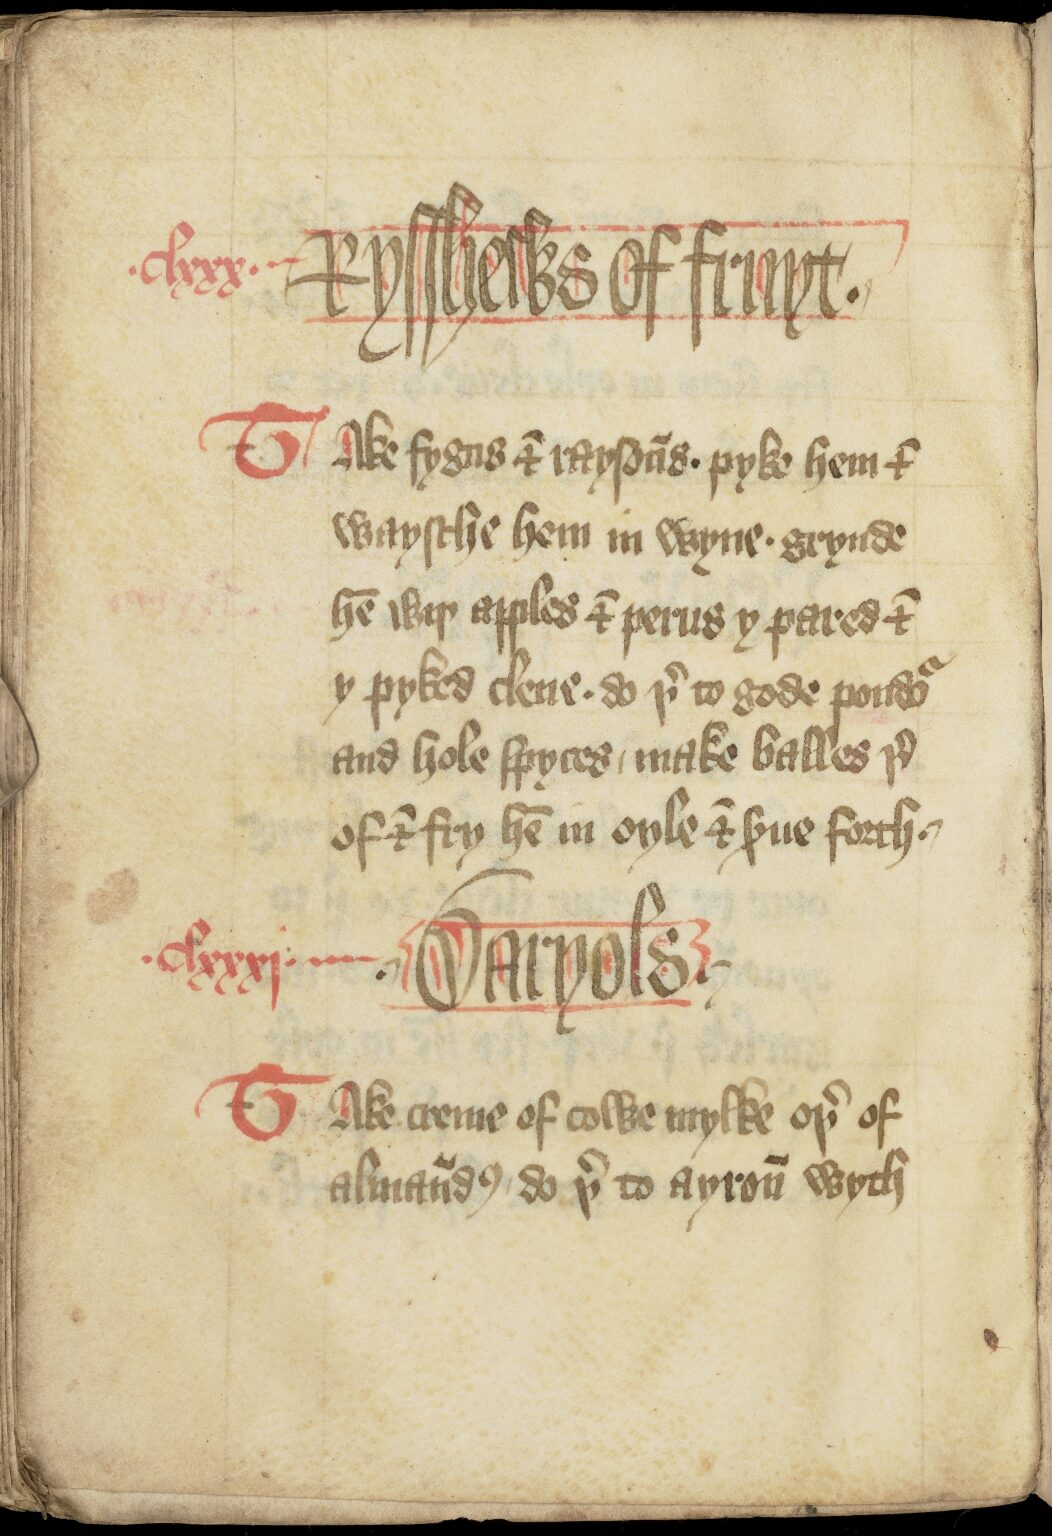 .clxxx. Rysshews of fruyt.
Take fygus ⁊ raysoũs. pyke hem ⁊
waysche hem in wyne. grynde
hē wiþ apples ⁊ perus y pared ⁊
y pyked clene. do þͬ to gode poudoͬ
and hole spyces, make balles þͬ
of ⁊ fry hē in oyle ⁊ ẜue forth.
.clxxxi. Daryols.
Take creme of cowe mylke oþͬ of
almaũdꝯ do þͬ to ayroũ wyth